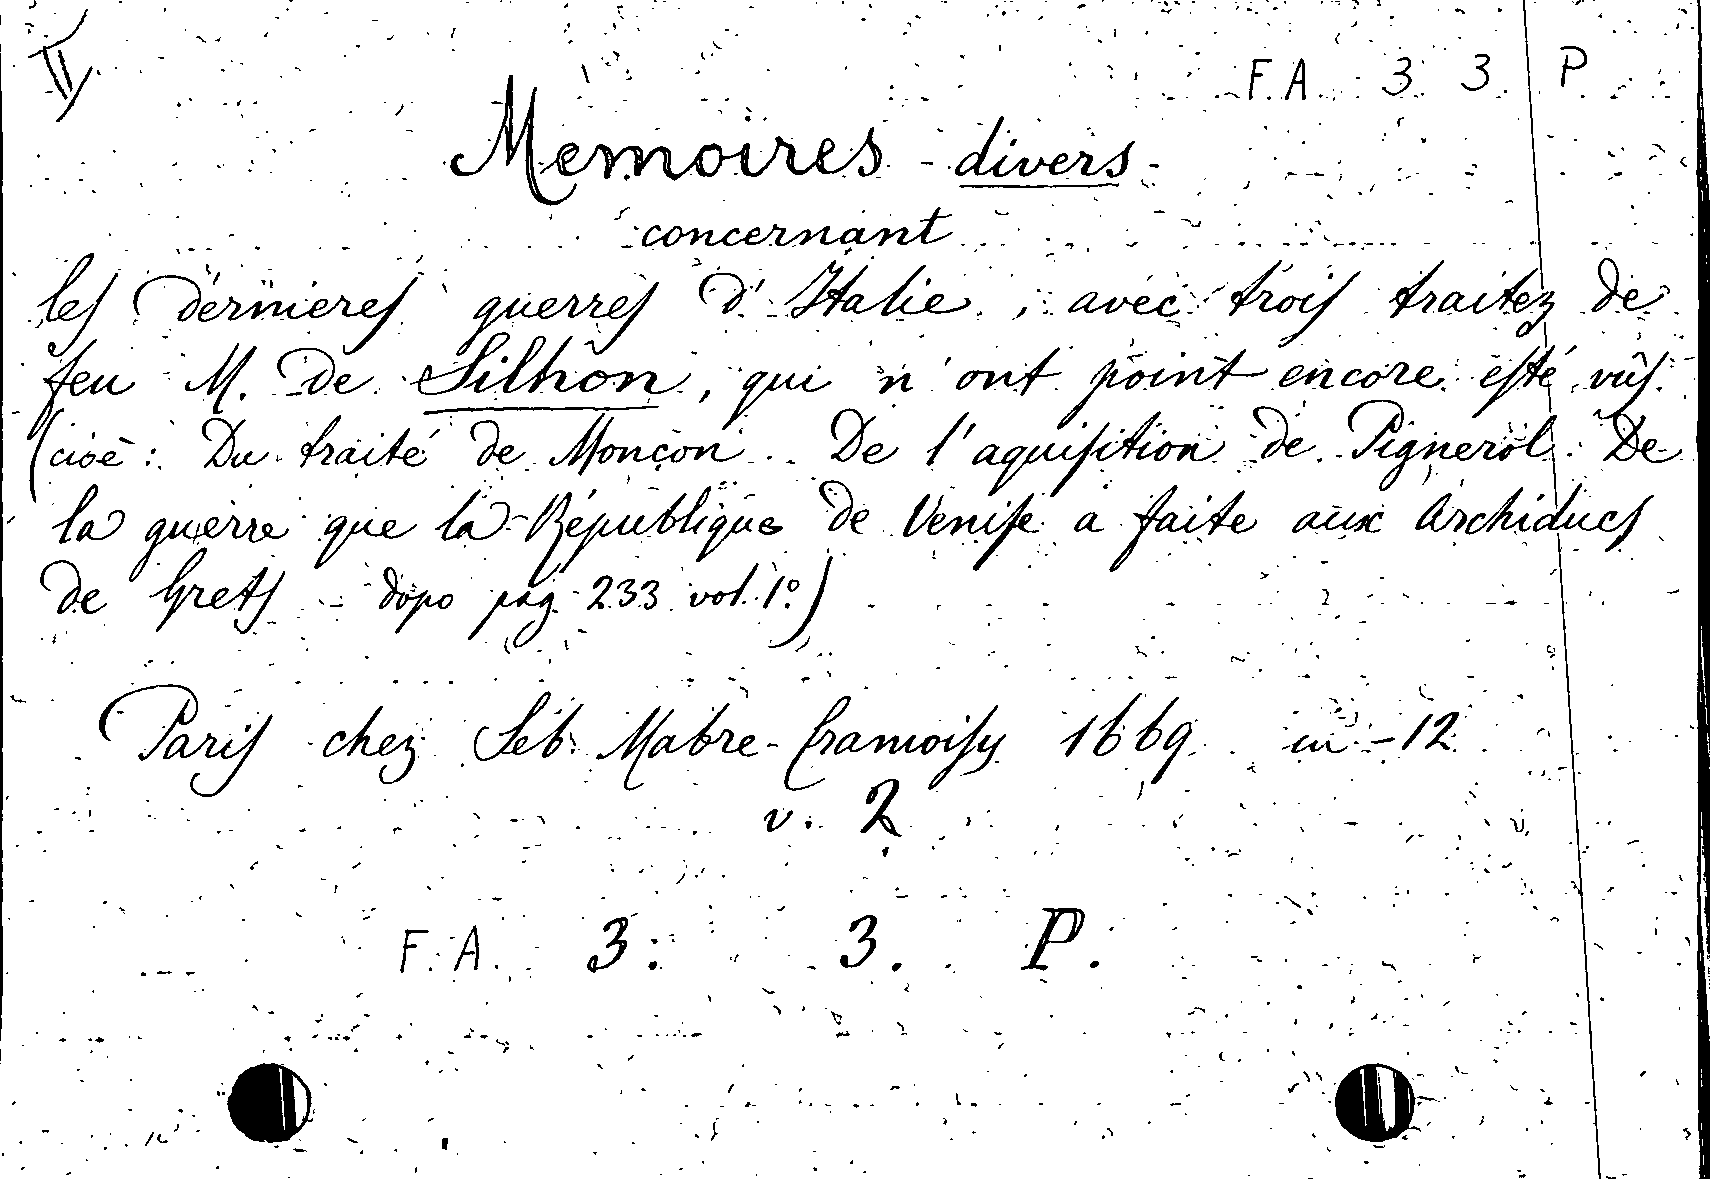 II
F. A. 3. 3. P.
Memoires divers
concernant
les dernieres guerres d'Italie, avec trois traitez de
feu M. de Silhon, qui n'ont point encore esté vûs.
(cioè: Du traité de Monçon. De l'aquisition de Pignerol. De
la guerre que la République de Venise a faite aux Archiducs
de Grets - dopo pag. 233 vol. 1º.)
Paris chez Seb. Mabre-Cramoisy 1669 in-12
v. 2
F. A. 3. 3. P.